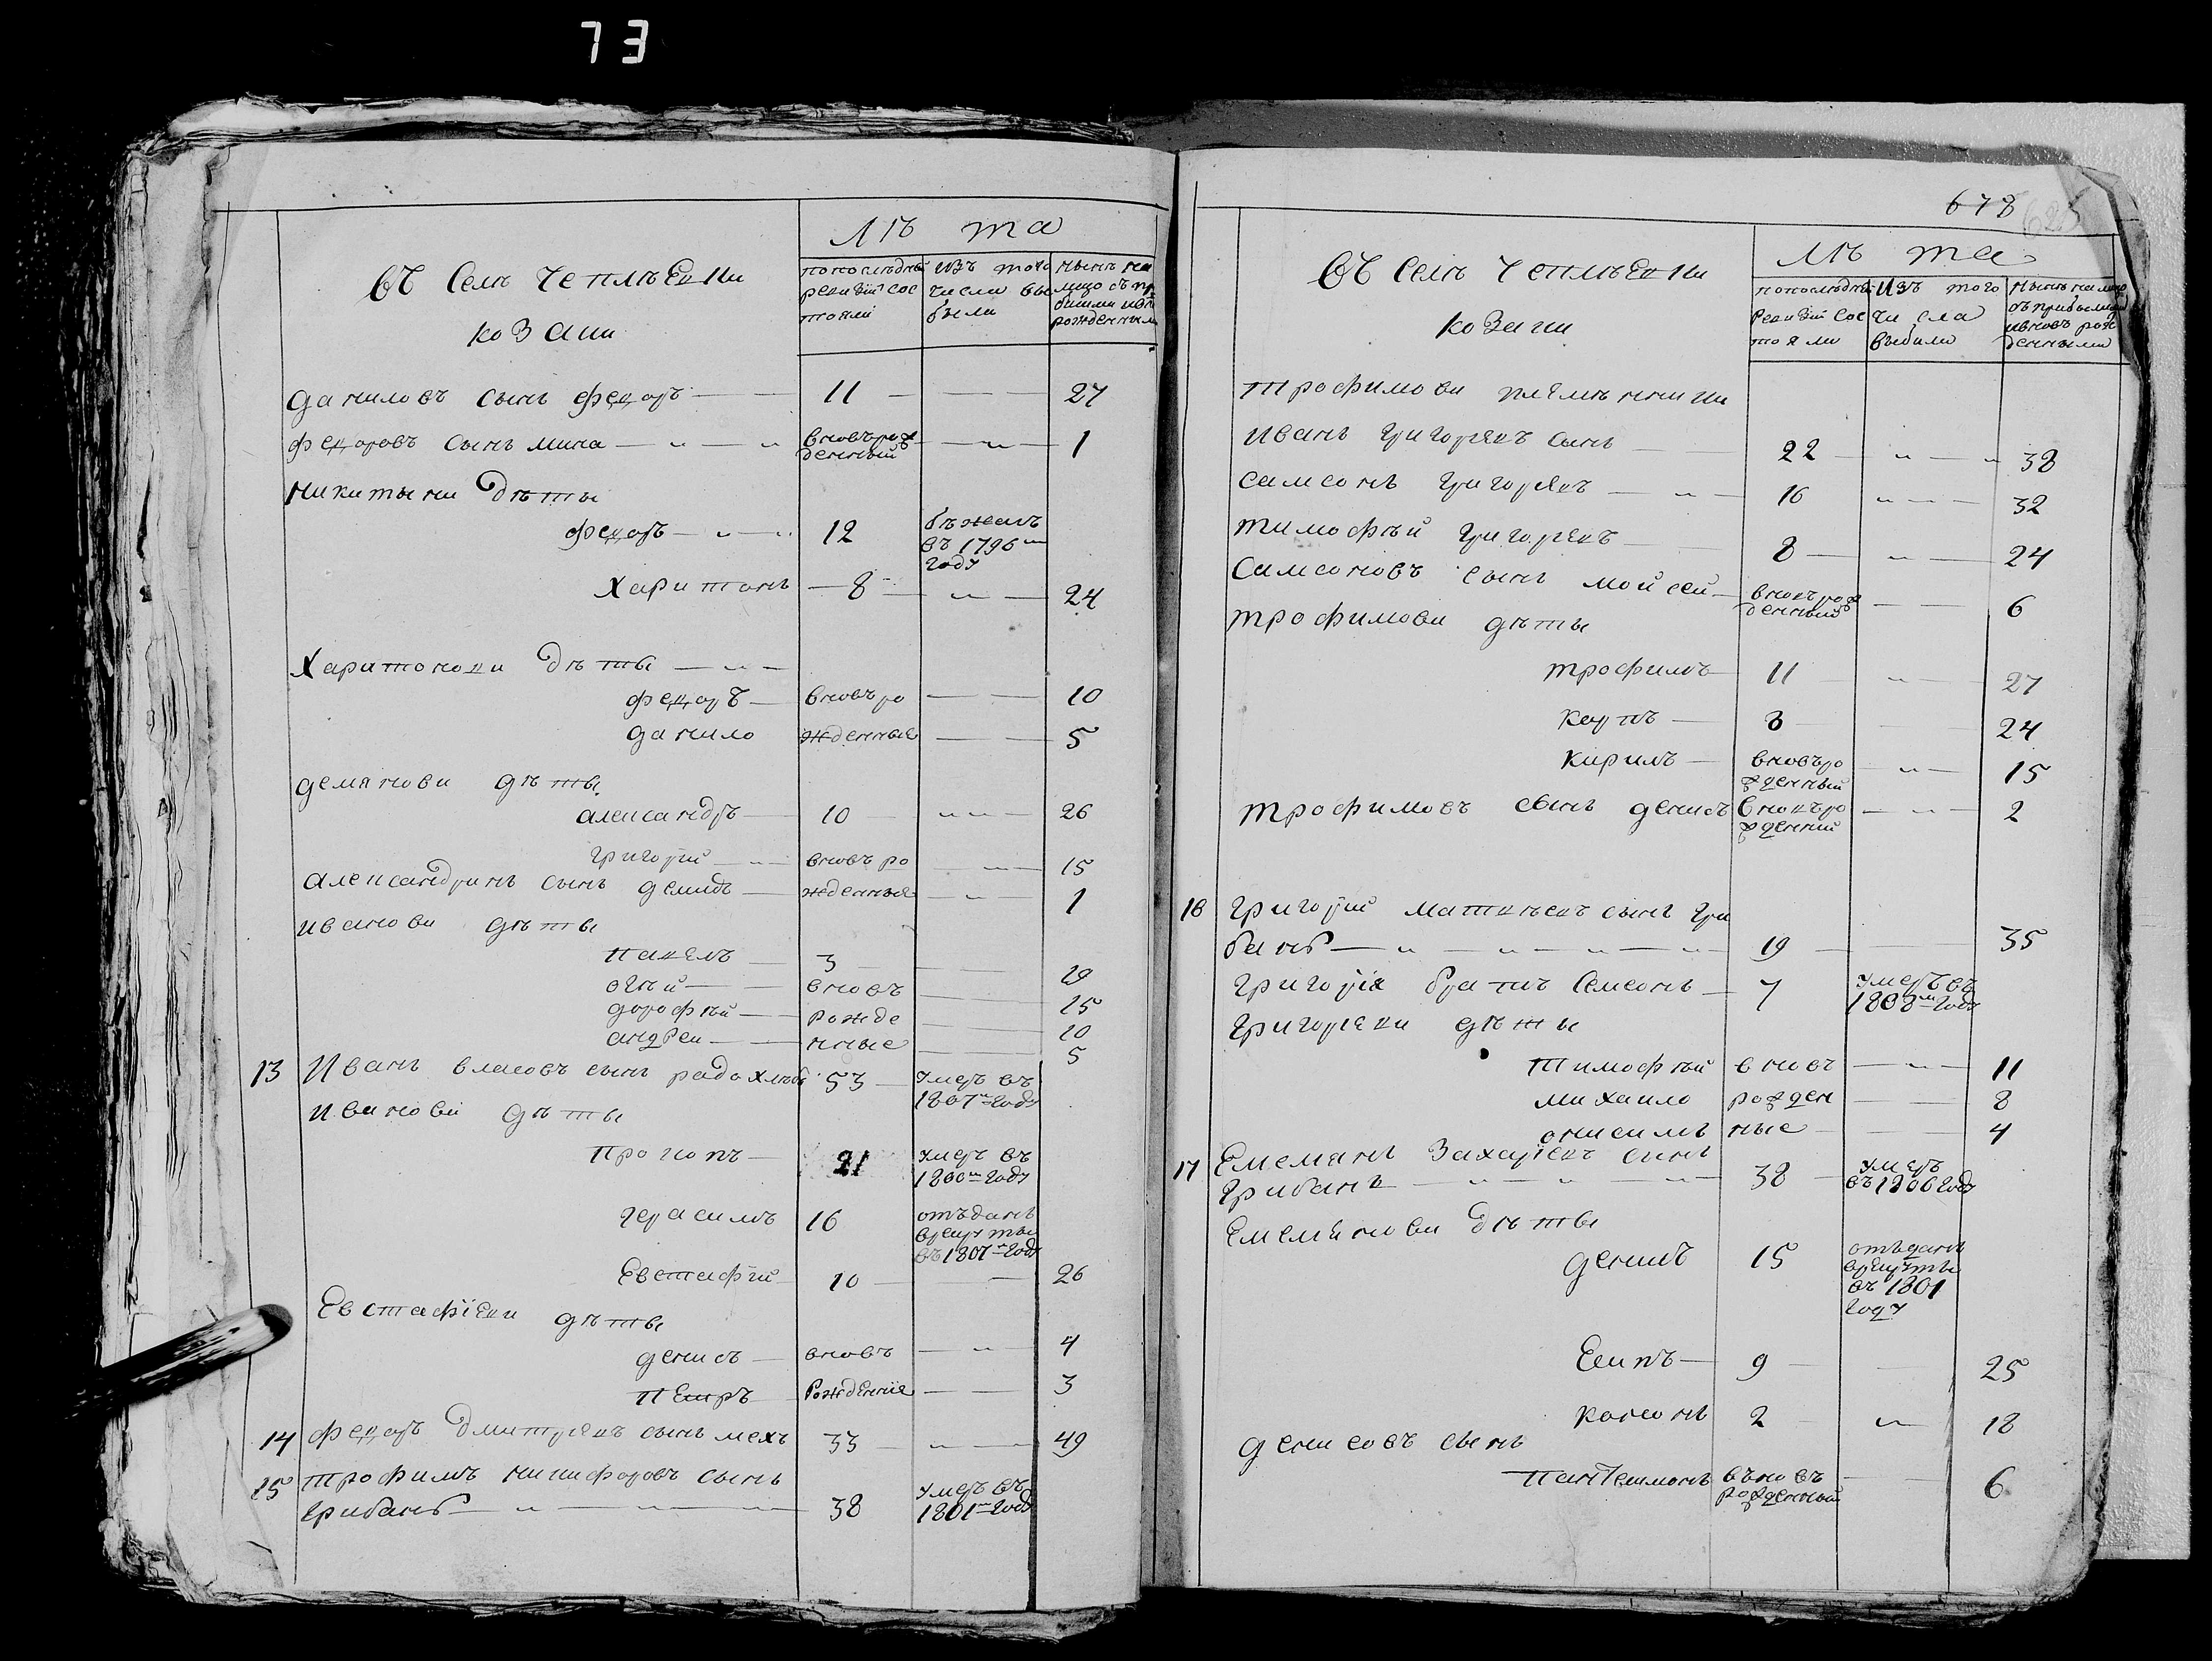 73
Лѣ та
въ Селѣ Чеплѣевки
козаки
попослѣдней ревизіи сос тояли
изъ того числа вы были
нынѣ на лицо съ при былими ивновь рожденными
даниловъ сынъ федоръ — — 11 — — — 27
федоровъ сынъ мина — " — " вновърож денный — " — 1
никитыни дѣты
федоръ — " — " 12 бѣжалъ въ 1796м году
харитонъ — 8 — — " — 24
Харитонови дѣты — " —
федоръ — вновъро — — 10
данило жденные — — 5
демянови дѣты
александръ — 10 — " — " — 26
григорій — " — вновъ ро — " — 15
александринъ сынъ демидъ — жденные — " — 1
иванови дѣты
павелъ — 3 — — 19
— вновъ — 15
дорофѣй — рожде — 10
андреи — нные — 5
13 Иванъ власовъ сынъ 53 — умеръ въ 1807м году
Иванови дѣты
прокопъ — 21 умеръ въ 1800м году
герасимъ 16 отъданъ врекруты въ 1807м году
Евстафій 10 — — 26
Евстафіеви дѣты
денисъ — вновъ — " — 4
Петръ — рожденніе — — 3
14 федоръ дмитріевъ сынъ мехъ 33 — " — 49
15 трофимъ никифоровъ сынъ
грибанъ — " — " — 38 умеръ въ 1801м году
678 625
Лѣ та
въ Селѣ Чеплѣевки
козаки
попослѣдней ревизіи сос тояли
Изъ того чи сла выбили
Нынѣ на лицо съ прибылими ивновъ рож денными
трофимови племѣнники
иванъ григоріевъ сынъ — 22 — " — " 38
самсонъ григоріевъ — " — 16 " — — 32
тимофѣй григоріевъ — 8 — " — 24
самсоновъ сынъ мойсей — вновърож денный — — 6
трофимови дѣты
трофимъ 11 " — 27
карпъ — 8 — 24
кирилъ — вновъро жденный — " — 15
трофимовъ сынъ денисъ вновъро жденній — " — 2
16 григорій матвѣевъ сынъ гри
банъ — " — " — " — " 19 — — 35
григорія братъ Семсонъ — 7 умеръ въ 1808м году
григоріеви дѣты
тимофѣй вновъ — " — 11
михаило рожден — — 8
онисимъ ные — — 4
17 Емемянъ Захаріевъ синъ
грибанъ — " — " — " — 38 — умеръ въ 1806 году
Емемянови дѣты
денисъ 15 отъданъ врекруты въ 1801 году
Есипъ — 9 — — 25
2 — " — 18
денисовъ сынъ
пантелимонъ въновъ рожденный — — 6